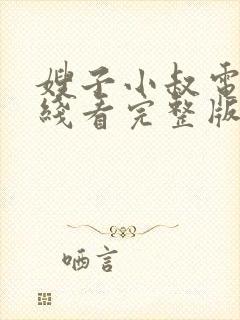 嫂子小叔电
线看完整版
哂言